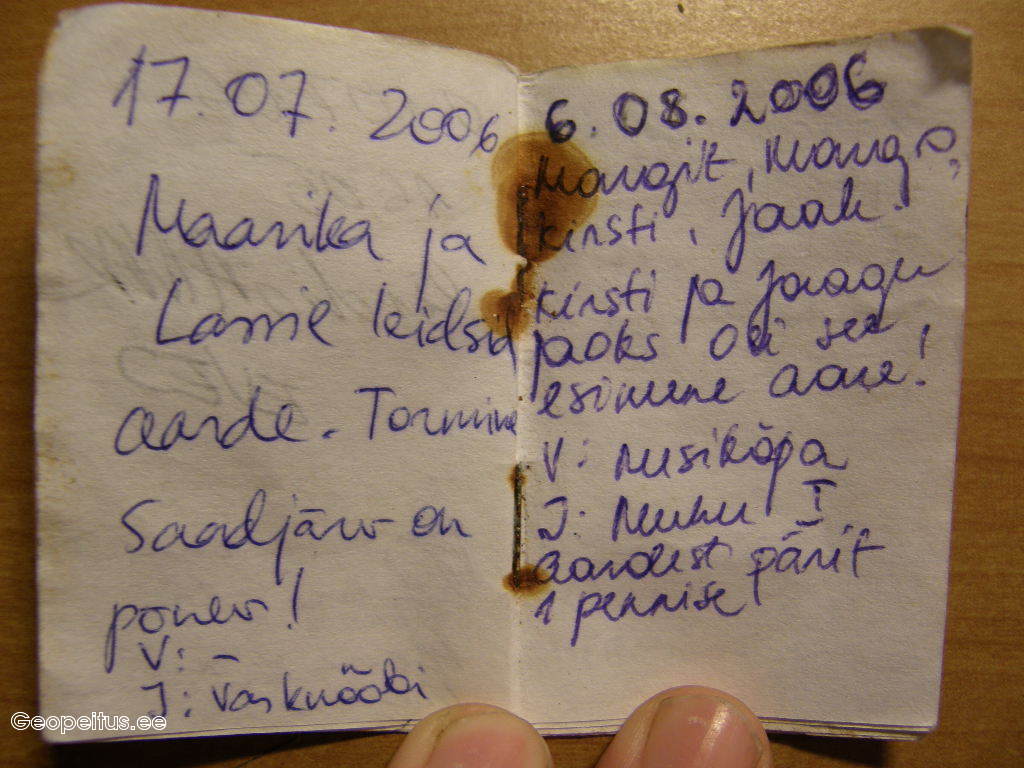 17.07.2006
Maarika ja
Lassie leidsid
aarde. Tormine
Saadjärv on
põnev!
V: -
J: vasknööbi
6.08.2006
Margit, Margo,
Kirsti, Jaak.
Kirsti ja Jaagu
jaoks oli see
esimene aare!
V: musikõpa
J: Muhu I
aardest pärit
1 pennise
Geopeitus.ee